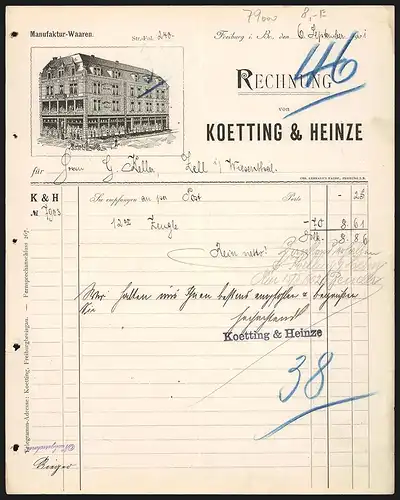 79000 8,-E
Manufaktur-Waaren.
Str.-Fol. 240.
Freiburg i. Br., den 6. September
446
RECHNUNG
von
KOETTING & HEINZE
für Herrn G. Keller, Zell i/ Wiesenthal.
K & H
Sie empfangen an per Post Porto - 25
№ 7903
12 Zeugle -70 8.61
8.86
Rein netto!
Wir halten uns Ihnen bestens empfohlen & begrüßen
Sie
hochachtend
Koetting & Heinze
38
Telegramm-Adresse: Koetting, Freiburgbreisgau. — Fernsprechanschluss 197.
Rieger